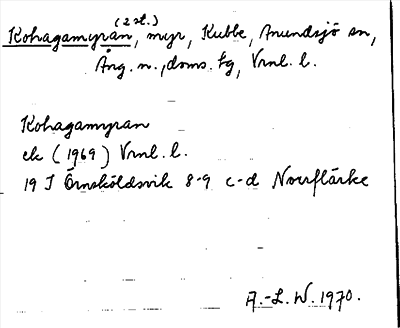 (2 st.)
Kohagamyran, myr, Kubbe, Anundsjö sn,
Ång. n., doms. tg, Vrnl. l.
Kohagamyran
ek (1969) Vrnl. l.
19 I Örnsköldsvik 8-9 c-d Norrflärke
A.-L. W. 1970.